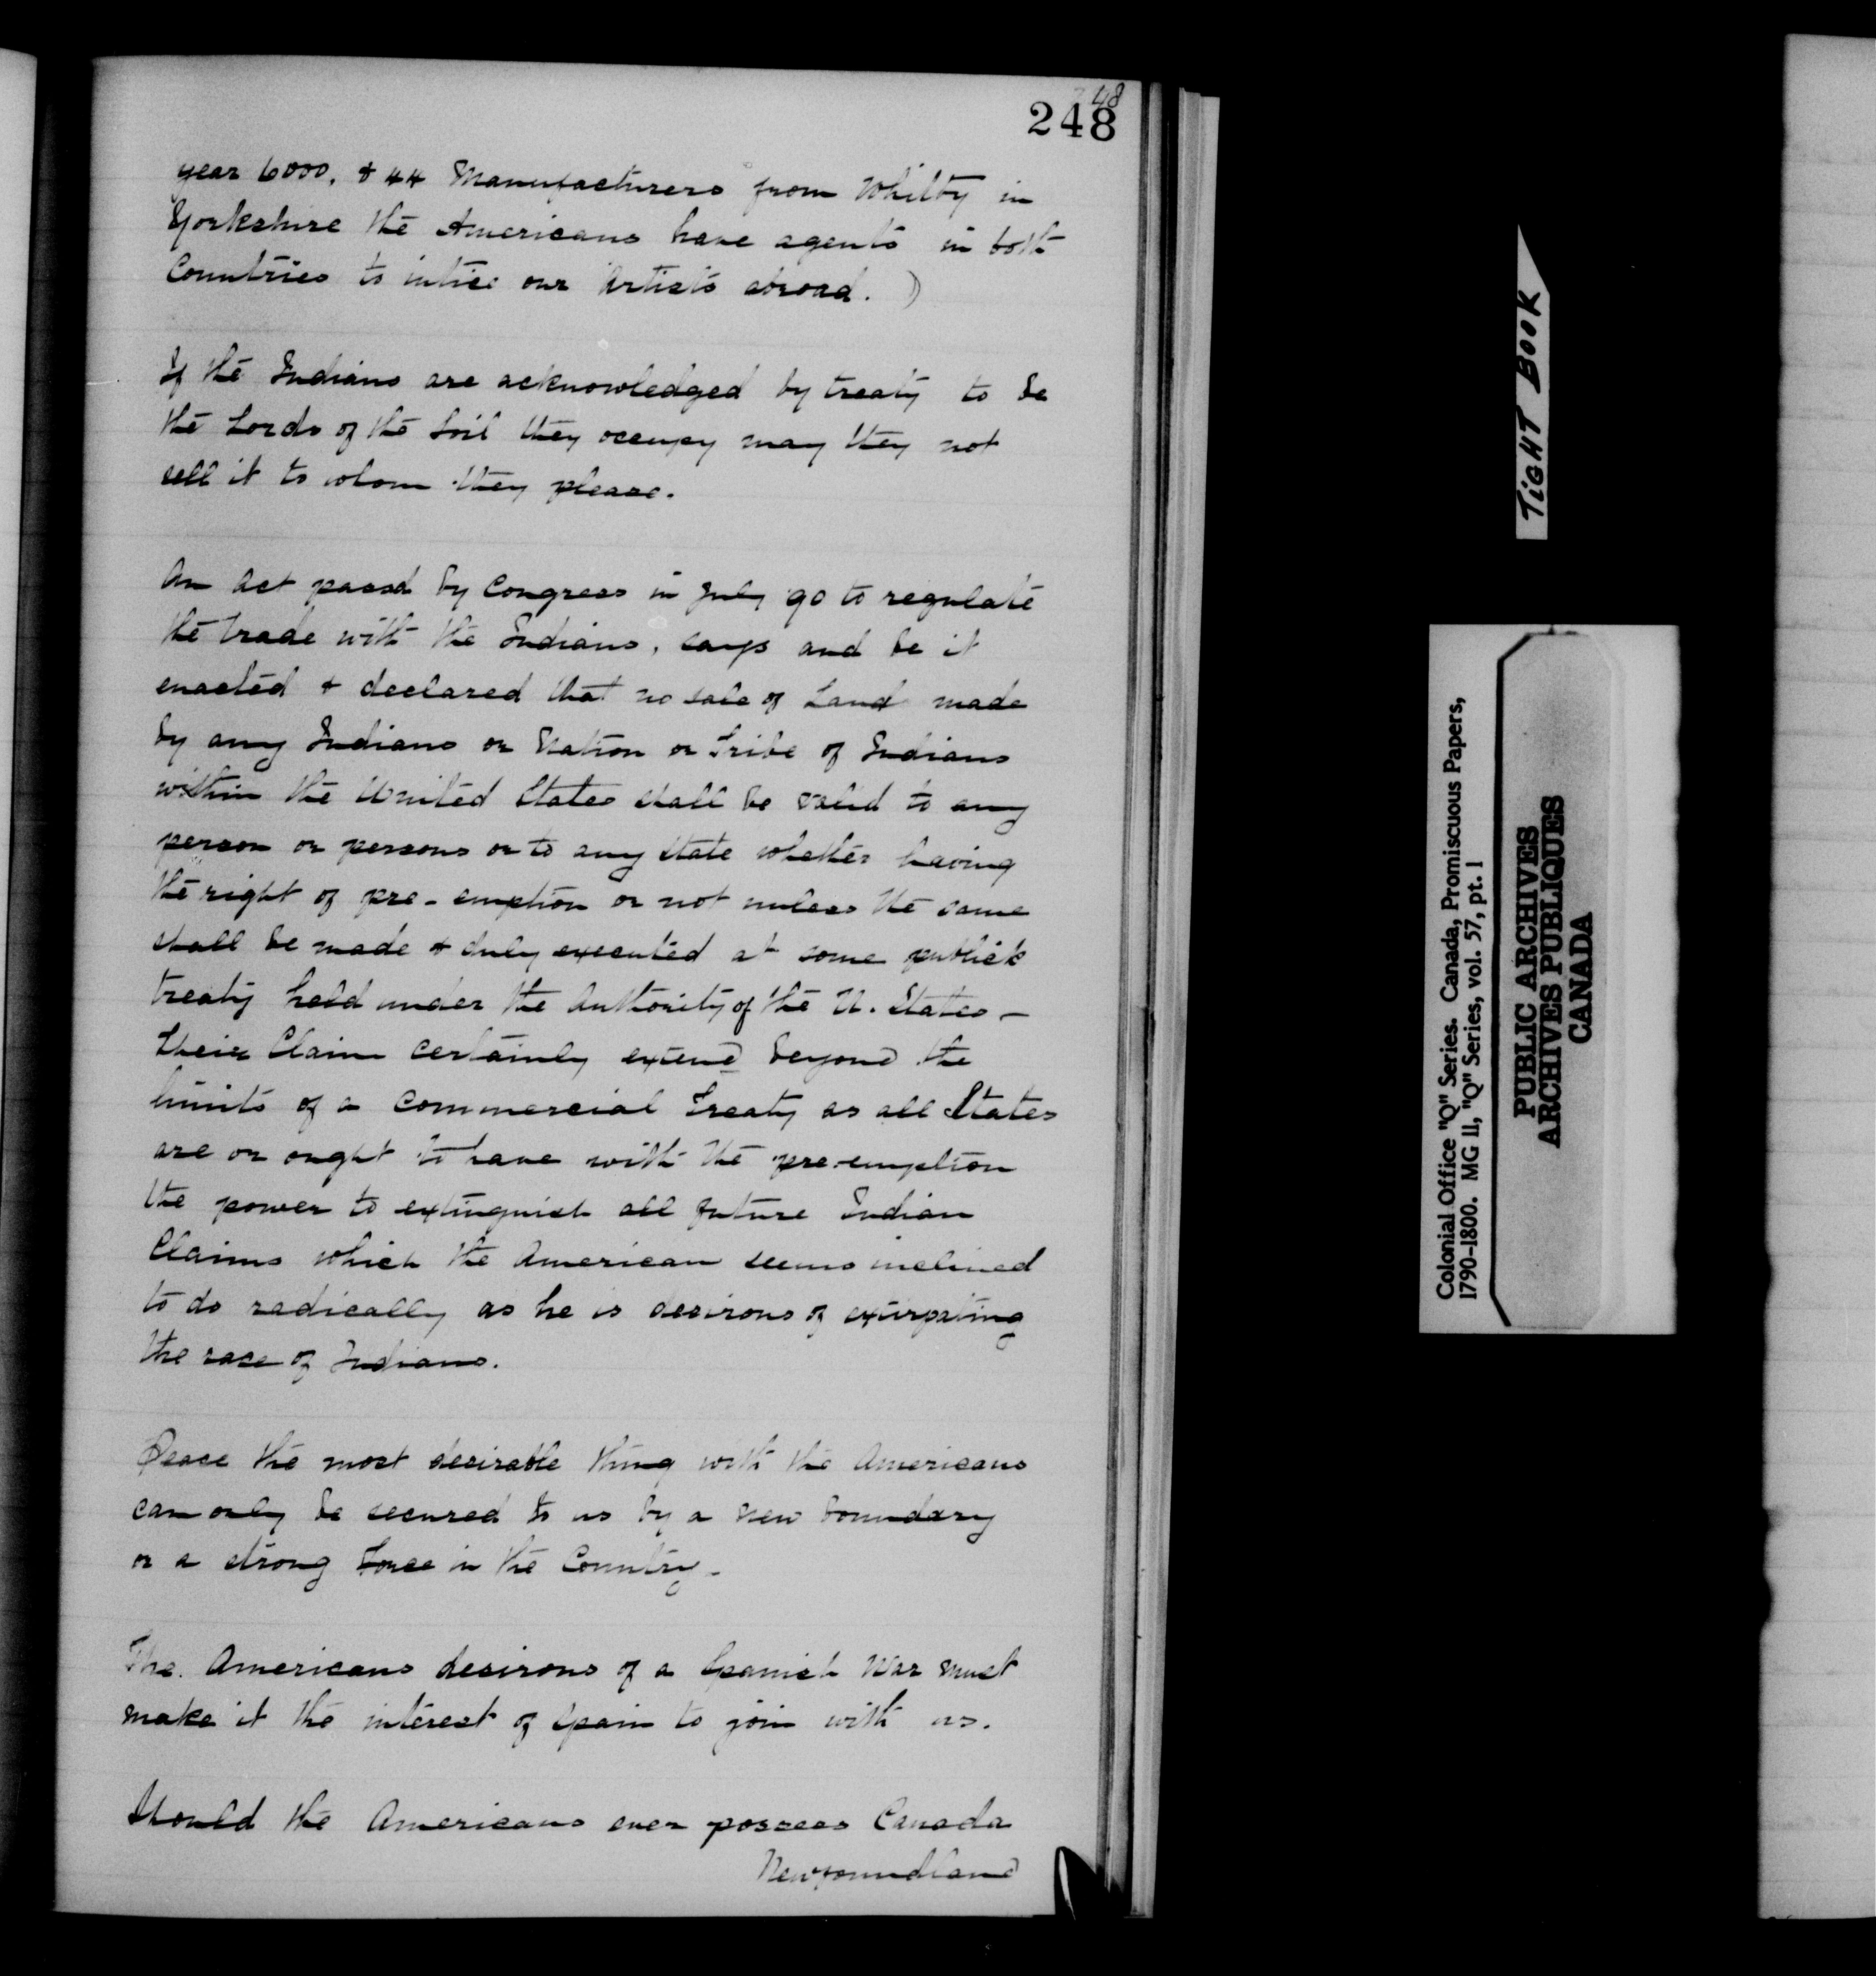 248
248
year 6000, & 44 Manufacturers from Whitby in
Yorkshire the Americans have agents in both
Countries to intice our Artists abroad. )
If the Indians are acknowledged by treaty to be
the Lords of the Soil they occupy may they not
sell it to whom they please.
An Act passd by Congress in July 90 to regulate
the trade with the Indians, says and be it
enacted & declared that no sale of Land made
by any Indians or Nation or Tribe of Indians
within the United States shall be valid to any
person or persons or to any State whether having
the right of pre-emption or not unless the same
shall be made & duly executed at some publick
treaty held under the Authority of the U. States –
Their Claim certainly extend beyond the
limits of a Commercial Treaty as all States
are or ought to have with the pre-emption
the power to extinguish all future Indian
Claims which the American seems inclined
to do radically as he is desirous of extirpating
the race of Indians.
Peace the most desirable thing with the Americans
can only be secured to us by a new boundary
or a strong Force in the Country –
The Americans desirous of a Spanish War must
make it the interest of Spain to join with us.
Should the Americans ever possess Canada
Newfoundland
TIGHT BOOK
Colonial Office "Q" Series. Canada, Promiscuous Papers,
1790-1800. MG 11, "Q" Series, vol. 57, pt. 1
PUBLIC ARCHIVES
ARCHIVES PUBLIQUES
CANADA